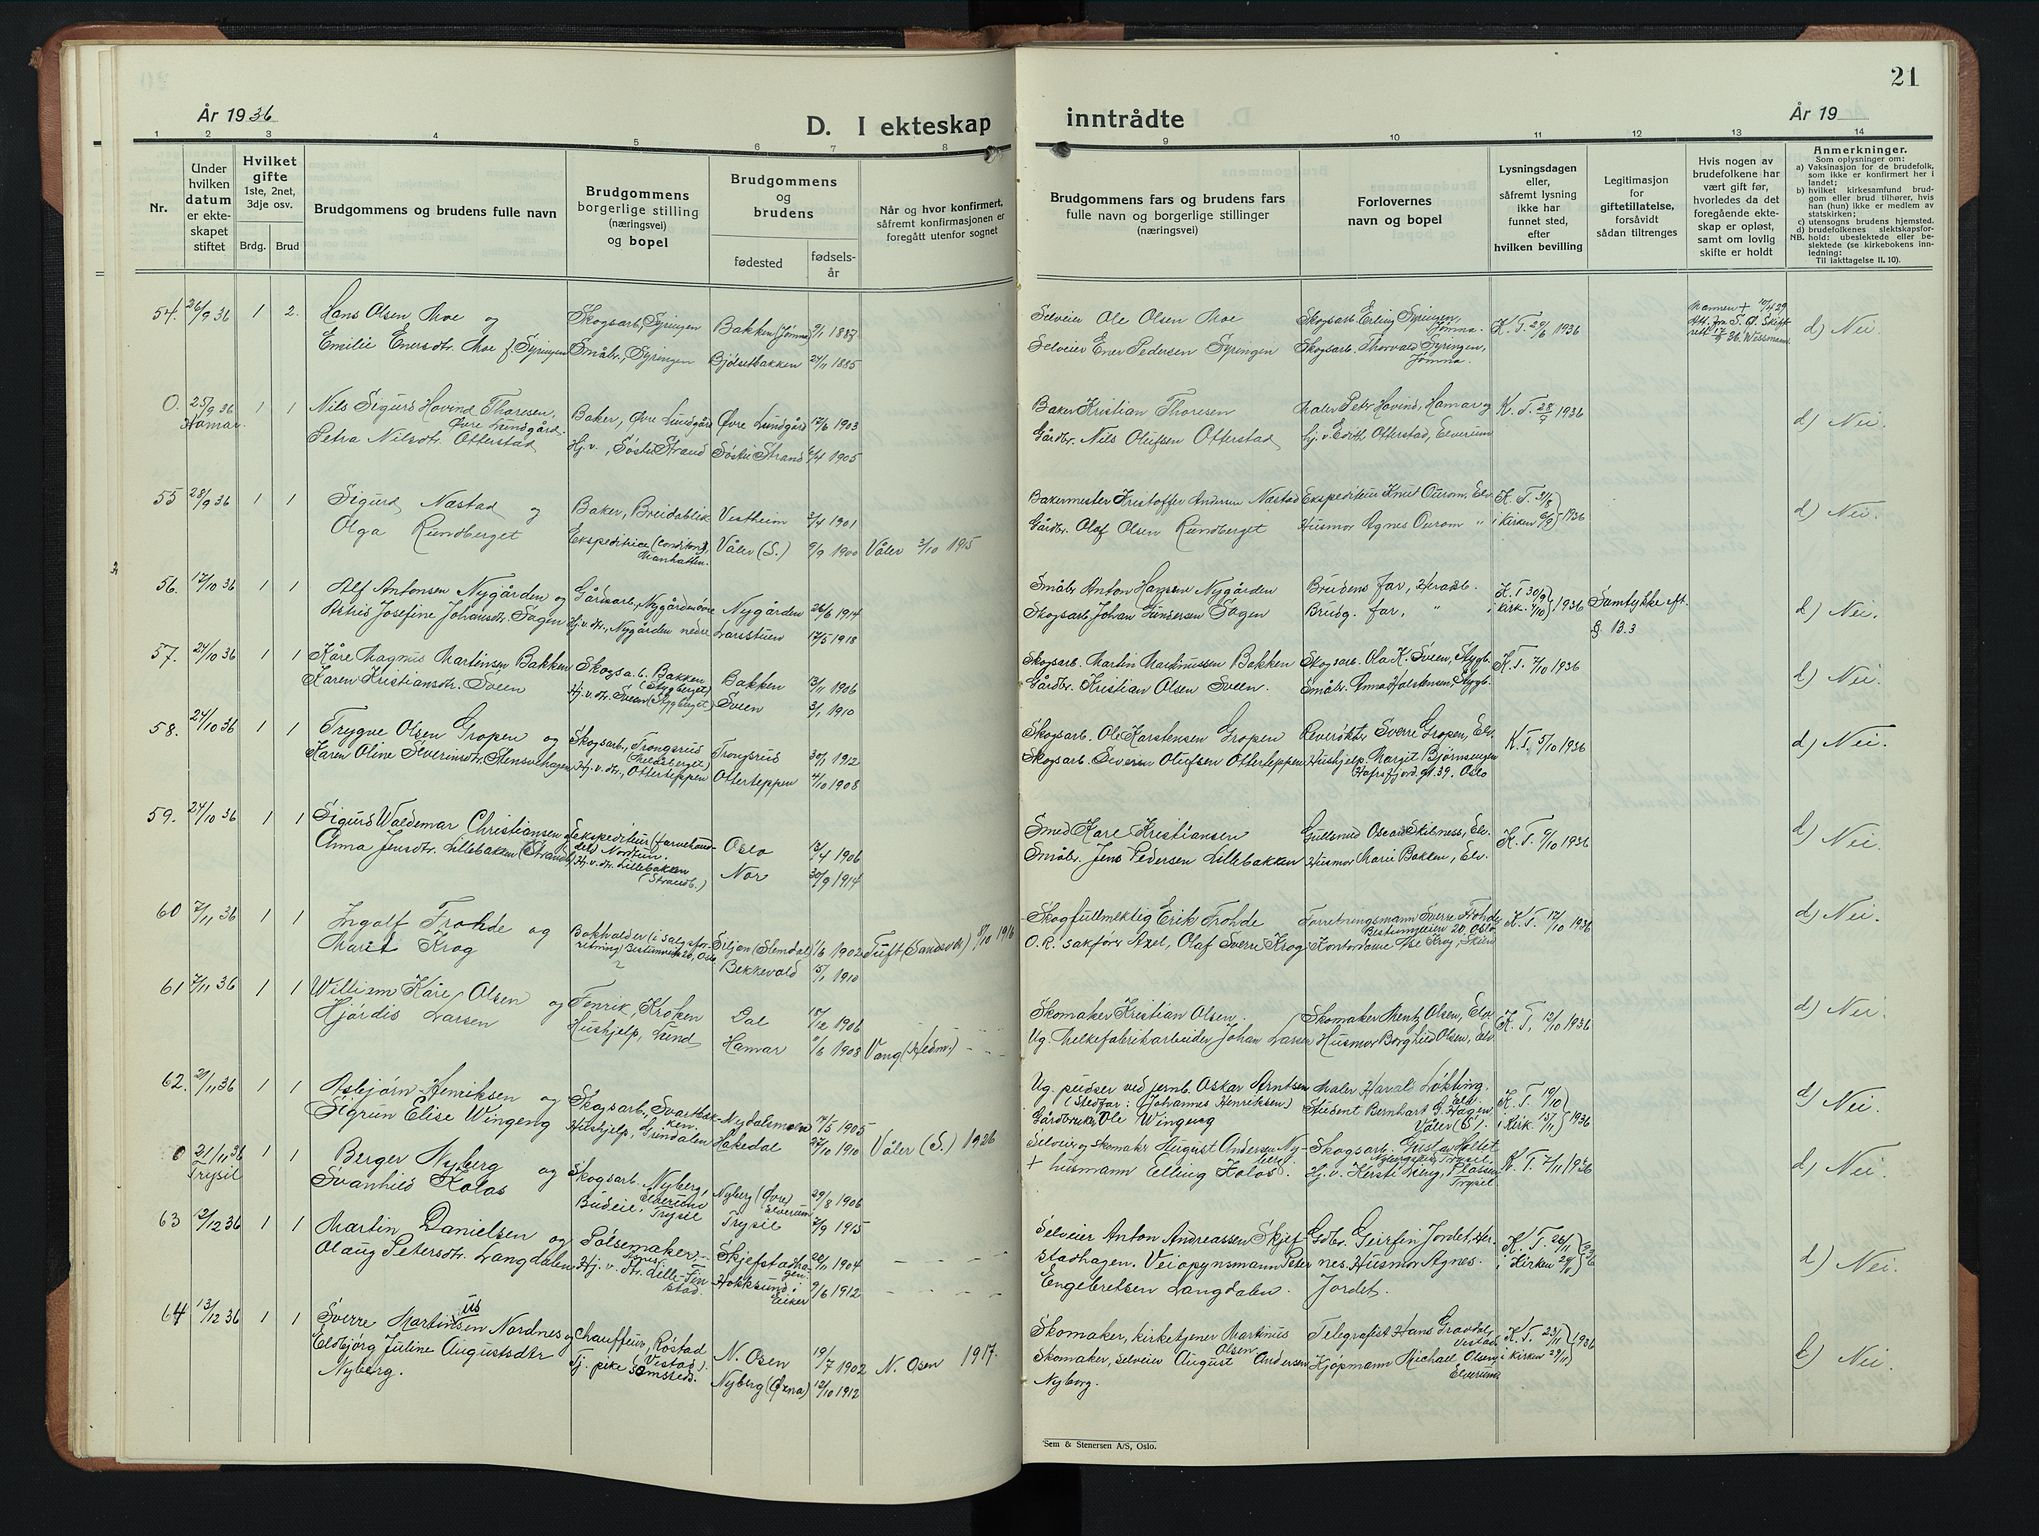 21
År 1936
D. I ekteskap inntrådte
År 19
1 2 3 4 5 6 7 8 9 10 11 12 13 14
Nr.
Under hvilken datum er ekteskapet stiftet
Hvilket gifte
1ste, 2net, 3dje osv.
Brdg. Brud
Brudgommens og brudens fulle navn
Brudgommens borgerlige stilling (næringsvei) og bopel
Brudgommens og brudens
fødested
fødselsår
Når og hvor konfirmert, såfremt konfirmasjonen er foregått utenfor sognet
Brudgommens fars og brudens fars fulle navn og borgerlige stillinger (næringsvei)
Forlovernes navn og bopel
Lysningsdagen eller, såfremt lysning ikke har funnet sted, efter hvilken bevilling
Legitimasjon for giftetillatelse, forsåvidt sådan tiltrenges
Hvis nogen av brudefolkene har vært gift før, hvorledes da det foregående ekteskap er opløst, samt om lovlig skifte er holdt
Anmerkninger.
Som oplysninger om:
a) Vaksinasjon for de brudefolk, som ikke er konfirmert her i landet;
b) hvilket kirkesamfund brudgom eller brud tilhører, hvis han (hun) ikke er medlem av statskirken;
c) utensogns brudens hjemsted.
d) brudefolkenes slektskapsforhold: ubeslektede eller beslektede (se kirkebokens innledning:
NB. Til iakttagelse II. 10).
54. 26/9 36 1 2. Hans Olsen Moe og Skogsarb., Syringen Bakken (Jømna) Selveier Ole Olsen Moe Skogsarb. Erling Syringen, Jømna. K. T. 1936 d) Nei.
Emilie Enersdtr. Moe f. Syringen Småbr., Syringen Bjølsetbakken 24/11 1885 Selveier Ener Pedersen Syringen Skogsarb. Thorvald Syringen, Jømna.
0. 25/9 36 Hamar 1 1 Nils Sigurd Hovind Thoresen, Øvre Lundgård Baker, Øvre Lundgård Øvre Lundgård 17/6 1903 Baker Kristian Thoresen Maler Peter Hovind, Hamar og K. T. 28/9 1936 d) Nei.
Petra Nilsdtr. Otterstad Hj. v., Søstu Strand Søstu Strand 1905 Gårdbr. Nils Olufsen Otterstad hj. v. Edith Otterstad, Elverum
55 28/9 36 1 1 Sigurd Næstad og Baker, Breidablik Vestheim 3/4 1901 Bakermester Kristoffer Andersen Næstad Ekspeditør Knut Ourom, Elv. K. T. 31/8 1936 d) Nei.
Olga Rundberget Ekspeditrice (Conditori), Manhatten. Våler (S.) 9/9 1900 Våler 3/10 1915 Gårdbr. Olaf Olsen Rundberget Husmor Agnes Ourom " i kirken 6/9
56. 17/10 36 1 1 Alf Antonsen Nygården og Gårdsarb., Nygården øvre Nygården 26/6 1914 Småbr. Anton Hansen Nygården Brudens far, Heradsb. K. T 30/9 1936 Samtykke eft. § 13.3 d) Nei.
Astrid Josefine Johansdtr. Sagen Hj. v. dtr., Nygården nedre Larsstuen 17/5 1918 Skogsarb. Johan Gundersen Sagen Brudg. far, " i kirk. 4/10
57. 24/10 36 1 1 Kåre Magnus Martinsen Bakken Skogsa. b. Bakken (Stygberget) Bakken 13/11 1906 Skogsarb. Martin Markmussen Bakken Skogsarb. Ola K. Sveen, Stygb. K. T. 7/10 1936 d) Nei.
Karen Kristiansdtr. Sveen Hj. v. dtr. Sveen (Stygberget) Sveen 3/1 1910 Gårdbr. Kristian Olsen Sveen. Småbr. Anna Holstensen, Stygb.
58. 24/10 36 1 1 Trygve Olsen Gropen og Skogsarb., Trongsrud Trongsrud 30/1 1912 Skogsarb. Ole Karstensen Gropen Sverre Gropen, Elv. K. T. 5/10 1936 d) Nei.
Karen Oline Severinsdtr. Stensvehagen Hj. v. dtr., Otterteppen Otterteppen 4/10 1908 Skogsarb. Severin Olufsen Otterteppen Hushjelp Margit Bjørnsengen Hafrsfjord. gt. 39. Oslo
59. 24/10 36 1 1 Sigurd Waldemar Christiansen og Ekspeditør (farvehandel) Nordtun. Oslo 12/4 1906 Smed Kare Kristiansen Gullsmed Oscar Skilness, Elv. K. T. 9/10 1936 d) Nei.
Anna Jensdtr. Lillebakken (Strandb.) Hj. v. dtr. Lillebakken (Strandb.) Nor 30/9 1914 Småbr. Jens Pedersen Lillebakken Husmor Marie Bakken, Elv.
60 7/11 36 1 1 Ingolf Frohde og Bokholder (i salgsforretning) Bestumveien 20, Oslo Siljan (Slemdal) 1/6 1902 Tuft (Sandsvær) 8/10 1916 Skogfullmektig Erik Frohde Forretningsmann Sverre Frohde Bestumveien 20, Oslo K. T. 17/10 1936 d) Nei.
Marit Krog ? Bekkevold 15/1 1910 O.R. sakfører Axel, Olaf Sverre Krog Kontordame Åse Krog, Skien
61 7/11 36 1 1 William Kåre Olsen og Fenrik, Kroken Dal 18/12 1906 Skomaker Kristian Olsen. Skomaker Mentz Olsen, Elv. K. T. 12/10 1936 d) Nei.
Hjørdis Larsen Hushjelp, Lund Hamar 9/6 1908 Vang (Hedm.) Ug. Melkefabrikarbeider Johan Larsen Husmor Borghild Olsen, Elv.
62. 21/11 36 1 1 Asbjørn Henriksen og Skogsarb., Svartbekken. Nydalsmoen 14/5 1905 Ug. pudser ved jernb. Oskar Arntsen (Stedfar: (Johannes Henriksen) Maler Harald Løkting, Elv. K. T. 19/10 1936 d) Nei.
Sigrun Elise Wingeng Hushjelp, Grindalen Hakedal 27/10 1910 Våler (S.) 1926 Gårdbruker Ole Wingeng Student Bernhart G. Hagen Våler (S). i Kirk. 15/11
0 21/11 36 Trysil 1 1 Berger Nyberg og Skogsarb. Nyberg, Elverum Nyberg (Øvre) Elverum 29/8 1906 Selveier og skomaker August Andersen Nyberg Skogsarb. Gustav Holtet K. T. 7/11 1936 d) Nei.
Svanhild Kolos Budeie, Trysil Trysil 7/9 1915 + husmann Elling Kolos. Hj. v. Kersti Plassen Trysil
63 12/12 36 1 1 Martin Danielsen og Pølsemaker Skjefstadhagen. 20/11 1904 Selveier Anton Andreassen Skjefstadhagen. Gdbr. Geirfin Jordet, Hernes. K. T. 26/11 1936 d) Nei.
Olaug Petersdtr. Langdalen Hj. v. dtr. Lille-Finstad. Hokksund i Eiker 9/6 1912 Veiopsynsmann Peter Engebretsen Langdalen. Husmor Agnes Jordet. i Kirken 29/11
64 13/12 36 1 1 Sverre Martinius Nordnes og Chauffeur, Røstad (Vestad). N. Osen 19/7 1902 N. Osen 1917. Skomaker, kirketjener Martinus Olsen Telegrafist Hans Gravdal, Vestad K. T. 23/11 1936 d) Nei.
Eldbjørg Juline Augustsdtr Nyberg. Tj. pike Sømsteds. Nyberg (Øxna) 12/10 1912 Skomaker, selveier August Andersen Nyborg. Kjøpmann Michael Olsen, Elverum i kirken 29/11
Sem & Stenersen A/S, Oslo.